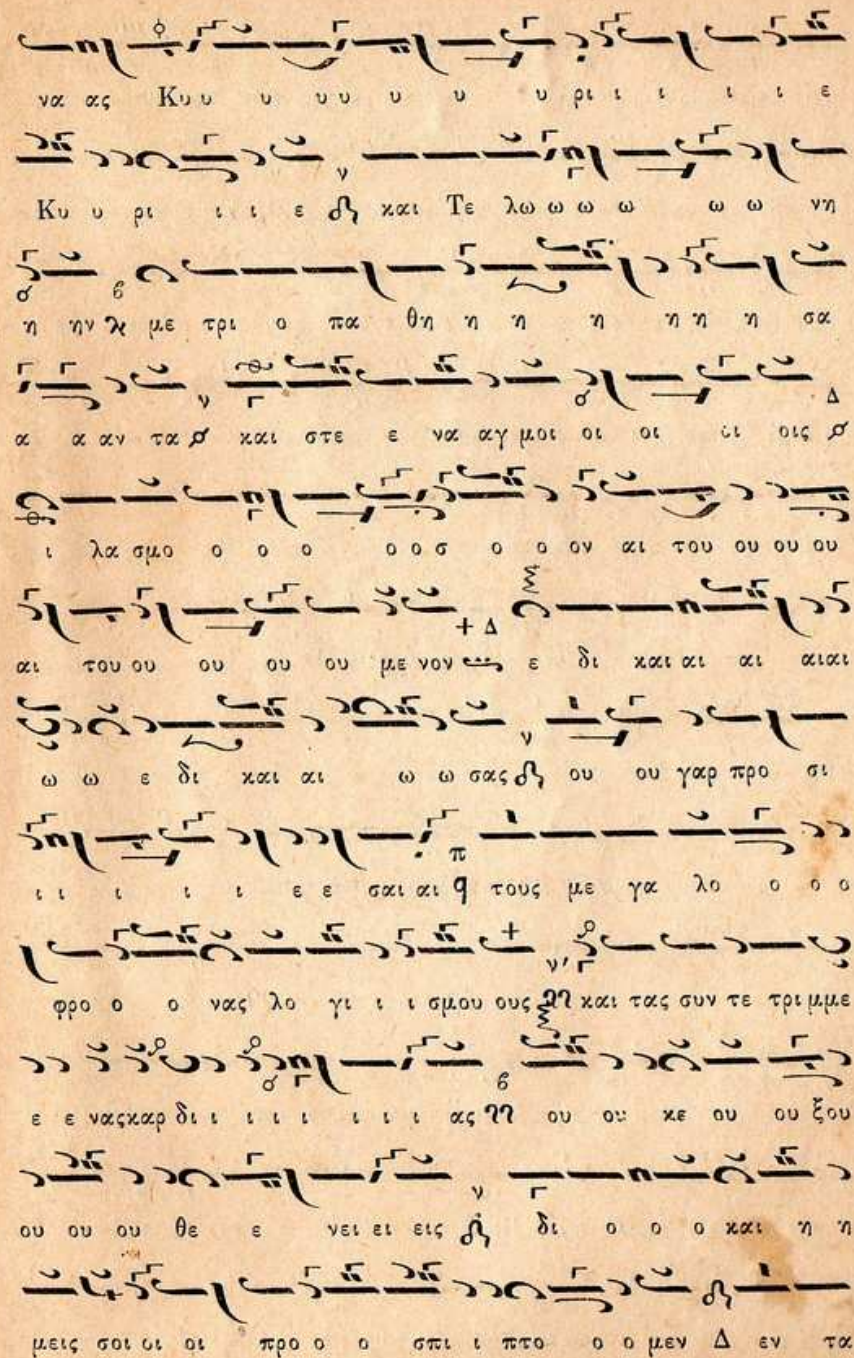 να ας Κυ υ υ υ υ υ υ υ ρι ι ι ι ι ε
Κυ υ ρι ι ι ε και Τε λω ω ω ω ω ω νη
η ην με τρι ο πα θη η η η η η η σα
α α αν τα και στε ε να αγ μοι οι οι οι οις
ι λα σμο ο ο ο ο ο σ ο ο ον αι του ου ου ου
αι του ου ου ου ου με νον ε δι και αι αι αι αι
ω ω ε δι και αι ω ω σας ου ου γαρ προ σι
ι ι ι ι ι ε ε σαι αι τους με γα λο ο ο ο
φρο ο ο νας λο γι ι ι σμου ους και τας συν τε τριμ με
ε ε νας καρ δι ι ι ι ι ι ι ας ου ου κε ου ου ξου
ου ου ου θε ε νει ει εις δι ο ο ο και η η
μεις σοι οι οι προ ο ο σπι ι πτο ο ο μεν Δ εν τα